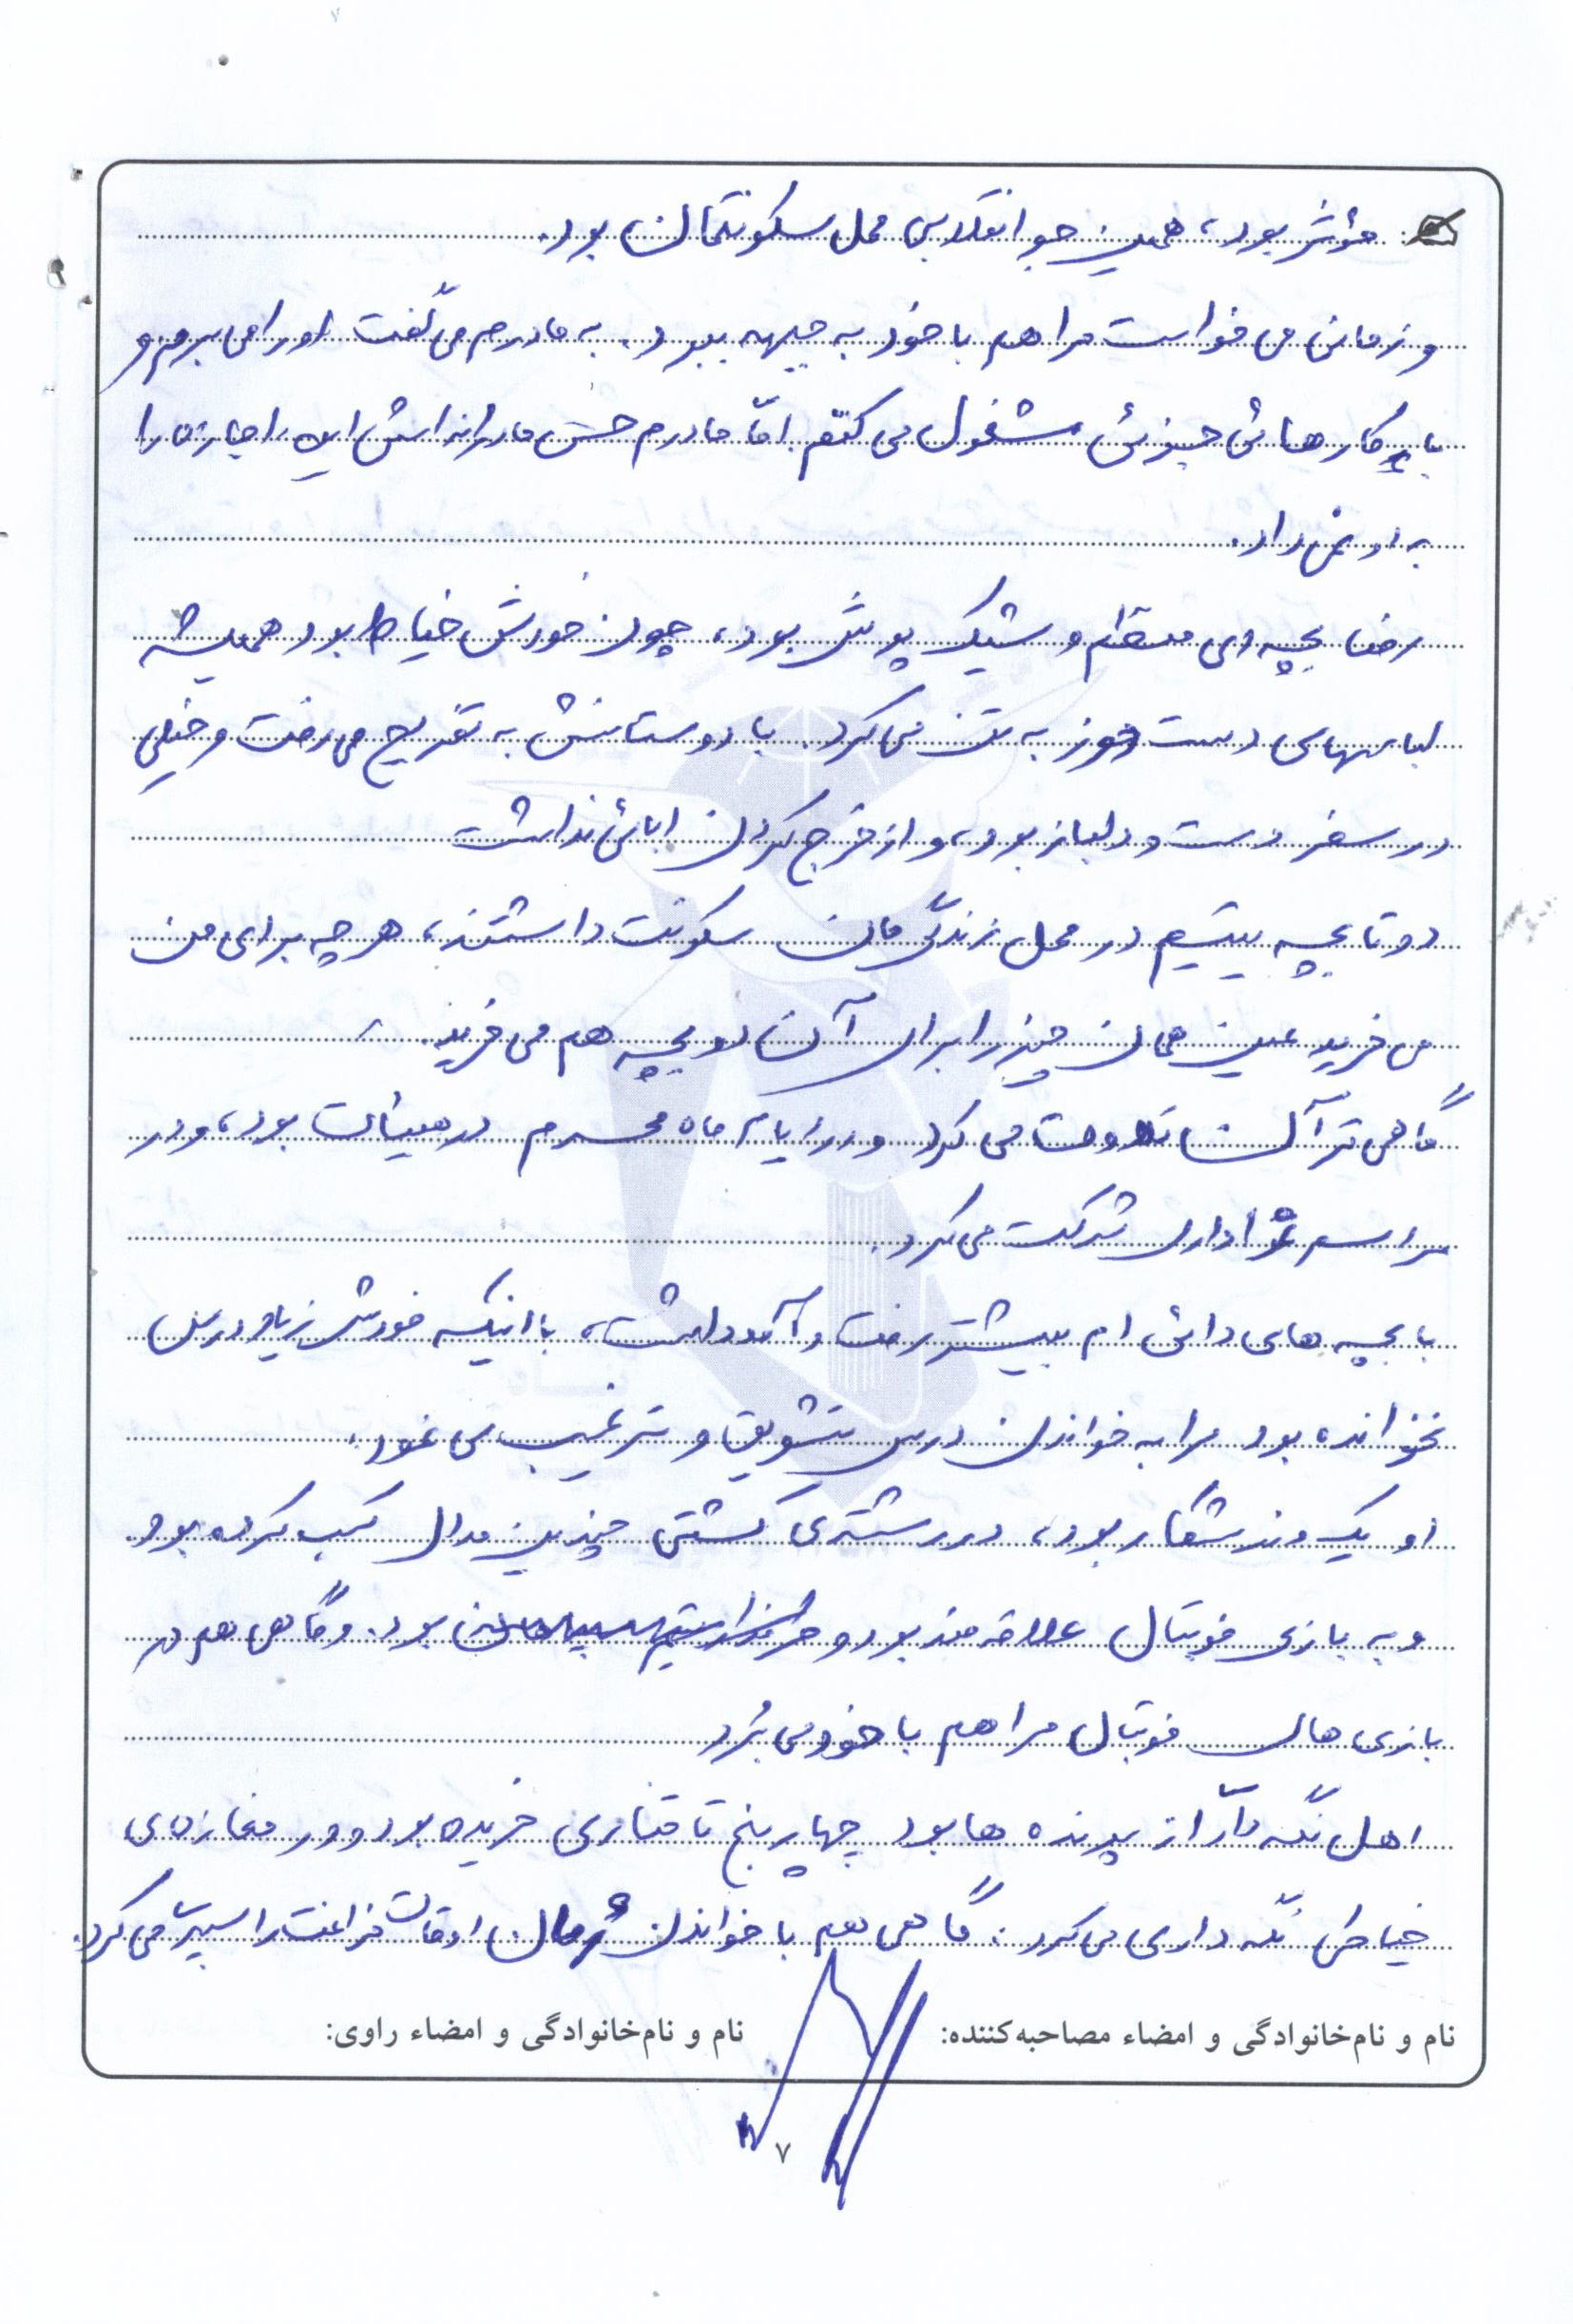 مؤثر بود، همین جو انقلابی محل سکونتمان بود.
و زمانی می خواست مرا هم با خود به جبهه ببرد. به مادرم می گفت او را می برم و
با کارهائی جزئی مشغول می کنم. امّا مادرم حس مادرانه اش این اجازه را
به او نمی داد.
رضا بچه ای منظم و شیک پوش بود، چون خودش خیاط بود همیشه
لباسهای دست دوز به تن می کرد. با دوستانش به تفریح می رفت و خیلی
در سفر دست و دلباز بود، و از خرج کردن ابائی نداشت
دو تا بچه یتیم در محل زندگی مان سکونت داشتند، هر چه برای من
می خرید عین همان چیز را برای آن دو بچه هم می خرید.
گاهی قرآن تلاوت می کرد و در ایام ماه محرم در هیئت بود، و در
مراسم عزاداری شرکت می کرد.
با بچه های دائی ام بیشتر رفت و آمد داشت، با اینکه خودش زیاد درس
نخوانده بود مرا به خواندن درس تشویق و ترغیب می نمود.
او یک ورزشکار بود، در رشته ی کشتی چندین مدال کسب کرده بود.
و به بازی فوتبال علاقه مند بود و بود. و گاهی هم در
بازی های فوتبال مرا هم با خود می بُرد
اهل نگه داری از پرنده ها بود چهار پنج تا قناری خریده بود و در مغازه ی
خیاطی نگه داری می کرد. گاهی هم با خواندن رُمان اوقات فراغت را سپری می کرد.
نام و نام‌خانوادگی و امضاء مصاحبه‌کننده:
نام و نام‌خانوادگی و امضاء راوی:
۷